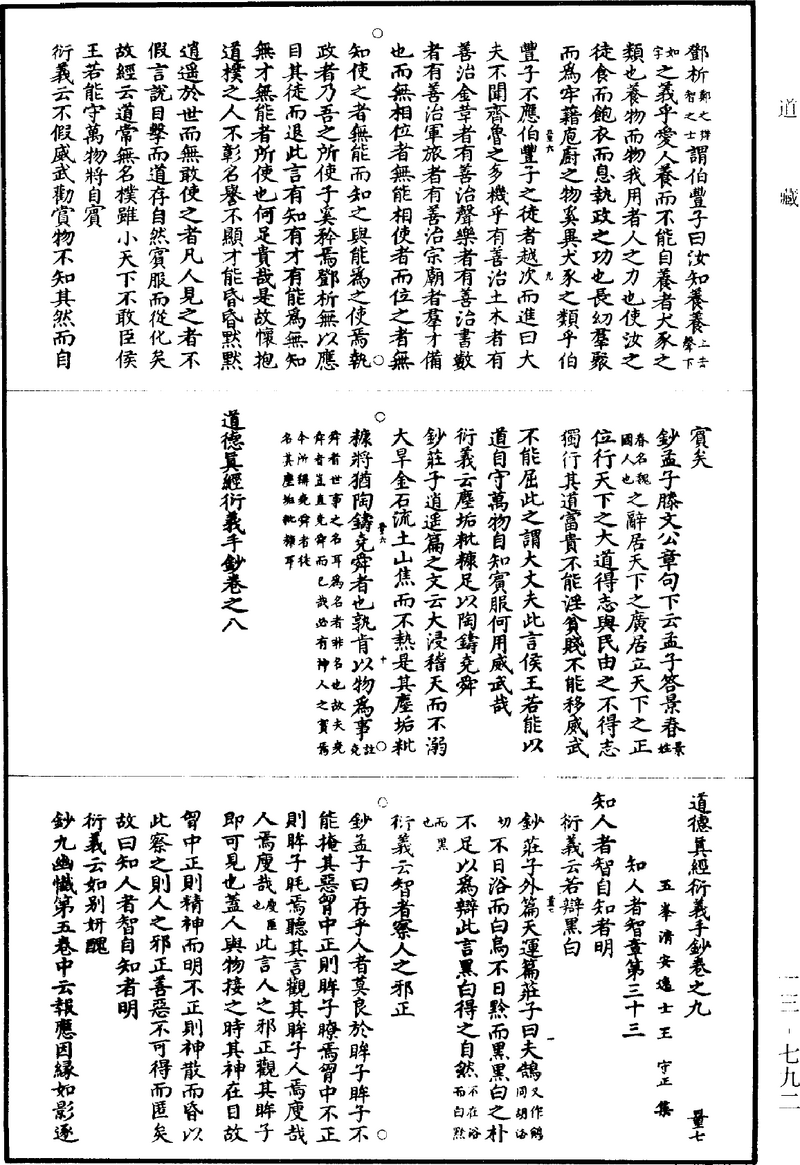 道藏
一三-七九二
鄧析鄭之辯智之士謂伯豐子曰汝知養養上去聲下
如字之義乎愛人養而不能自養者犬豕之
類也養物而物我用者人之力也使汝之
徒食而飽衣而息執政之功也長幼羣聚
而爲牢藉庖廚之物奚異犬豕之類乎伯
豐子不應伯豐子之徒者越次而進曰大
夫不聞齊魯之多機乎有善治土木者有
善治金革者有善治聲樂者有善治書數
者有善治軍旅者有善治宗廟者羣才備
也而無相位者無能相使者而位之者無
知使之者無能而知之與能爲之使焉執
政者乃吾之所使子奚矜焉鄧析無以應
目其徒而退此言有知有才有能爲無知
無才無能者所使也何足貴哉是故懷抱
道樸之人不彰名譽不顯才能昏昏默默
逍遥於世而無敢使之者凡人見之者不
假言說目擊而道存自然賓服而從化矣
故經云道常無名樸雖小天下不敢臣侯
王若能守萬物將自賓
衍義云不假威武勸賞物不知其然而自
賓矣
鈔孟子滕文公章句下云孟子答景春景姓
春名魏國人也之辭居天下之廣居立天下之正
位行天下之大道得志與民由之不得志
獨行其道富貴不能淫貧賤不能移威武
不能屈此之謂大丈夫此言侯王若能以
道自守萬物自知賓服何用威武哉
衍義云塵垢粃糠足以陶鑄堯舜
鈔莊子逍遥篇之文云大浸稽天而不溺
大旱金石流土山焦而不熱是其塵垢粃
糠將猶陶鑄堯舜者也孰肯以物爲事註堯
舜者世事之名耳爲名者非名也故夫堯
舜者豈直堯舜而已哉必有神人之實焉
今所稱堯舜者徒
名其塵垢粃糠耳
道德眞經衍義手鈔卷之八
道德眞經衍義手鈔卷之九 量七
五峯清安逸士王守正集
知人者智章第三十三
知人者智自知者明
衍義云若辯黑白
鈔莊子外篇天運篇莊子曰夫鵠又作鶴同胡洛
切不日浴而白烏不日黔而黑黑白之朴
不足以爲辯此言黑白得之自然不在浴而白黔
而黑也
衍義云智者察人之邪正
鈔孟子曰存乎人者莫良於眸子眸子不
能掩其惡胷中正則眸子瞭焉胷中不正
則眸子眊焉聽其言觀其眸子人焉廋哉
人焉廋哉廋匿也此言人之邪正觀其眸子
即可見也蓋人與物接之時其神在目故
胷中正則精神而明不正則神散而昏以
此察之則人之邪正善惡不可得而匿矣
故曰知人者智自知者明
衍義云如别妍醜
鈔九幽懺第五卷中云報應因緣如影逐